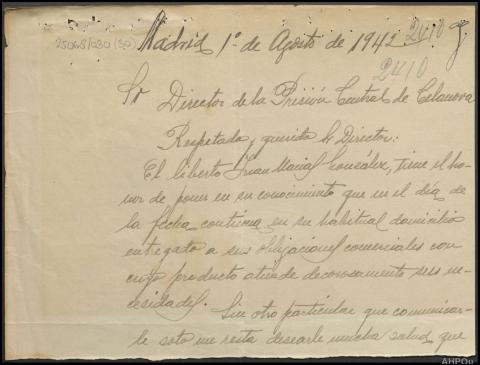 25065/030 (30)
Madrid 1º de Agosto de 1942
2410
2410
Sr Director de la Prisión Central de Celanova
Respetado y querido Sr Director:
El liberto Juan Macias González, tiene el ho-
nor de poner en su conocimiento que en el día de
la fecha continua en su habitual domicilio
entregado a sus obligaciones comerciales con
cuyo producto atiende decorosamente sus ne-
cesidades.
Sin otro particular que comunicar-
le solo me resta desearle mucha salud, que
AHPOu